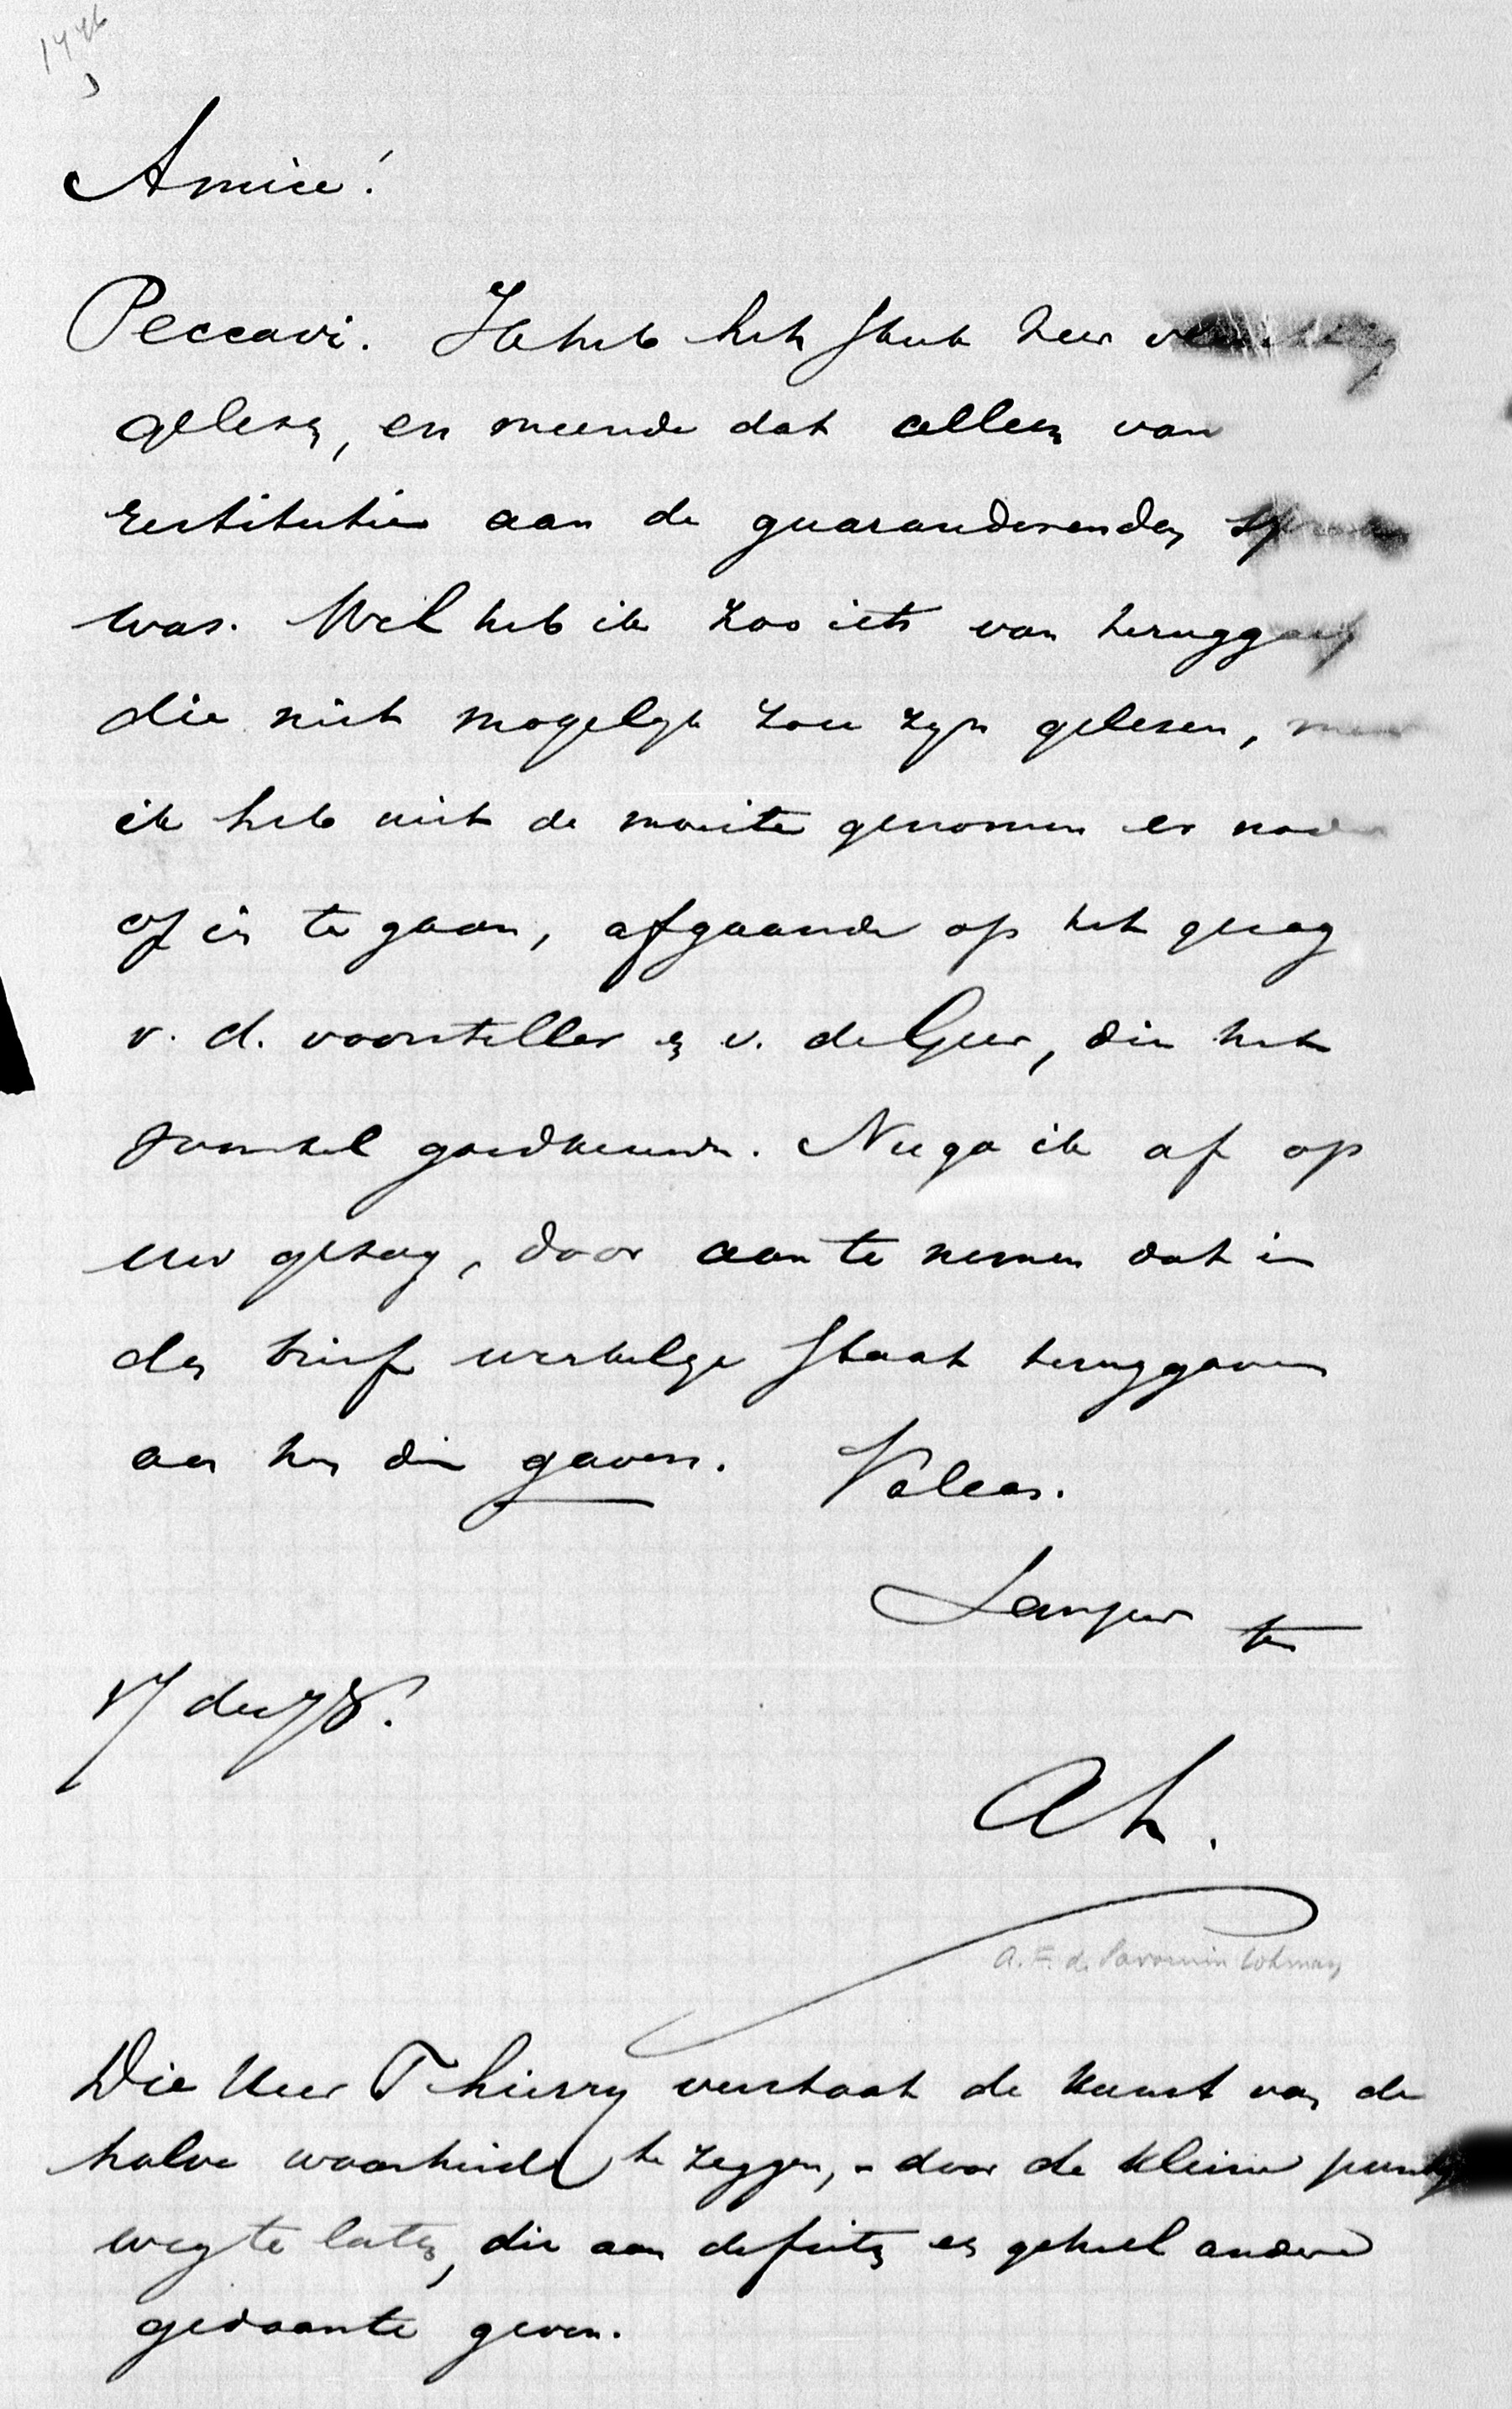 1446
Amice!
Peccavi. Ik heb het stuk zeer
gelezen, en meende dat alleen van
restitutie aan de guaranderenden
was. Wel heb ik zoo iets van teruggaaf
die niet mogelijk zou zijn gelezen, maar
ik heb niet de moeite genomen er nader
op in te gaan, afgaande op het gezag
v. d. voorsteller en v. de Geer, die het
voorstel goedkeurde. Nu ga ik af op
uw gezag, door aan te nemen dat in
den brief werkelijk staat teruggaven
aan hen die gaven. Valeas.
Semper tt
17 dec 78.
AL.
A. F. de Savornin Lohman
Die Heer Thierry verstaat de kunst van de
halve waarheid te zeggen, - door de kleine punten
weg te laten, die aan de feiten een geheel andere
gedaante geven.